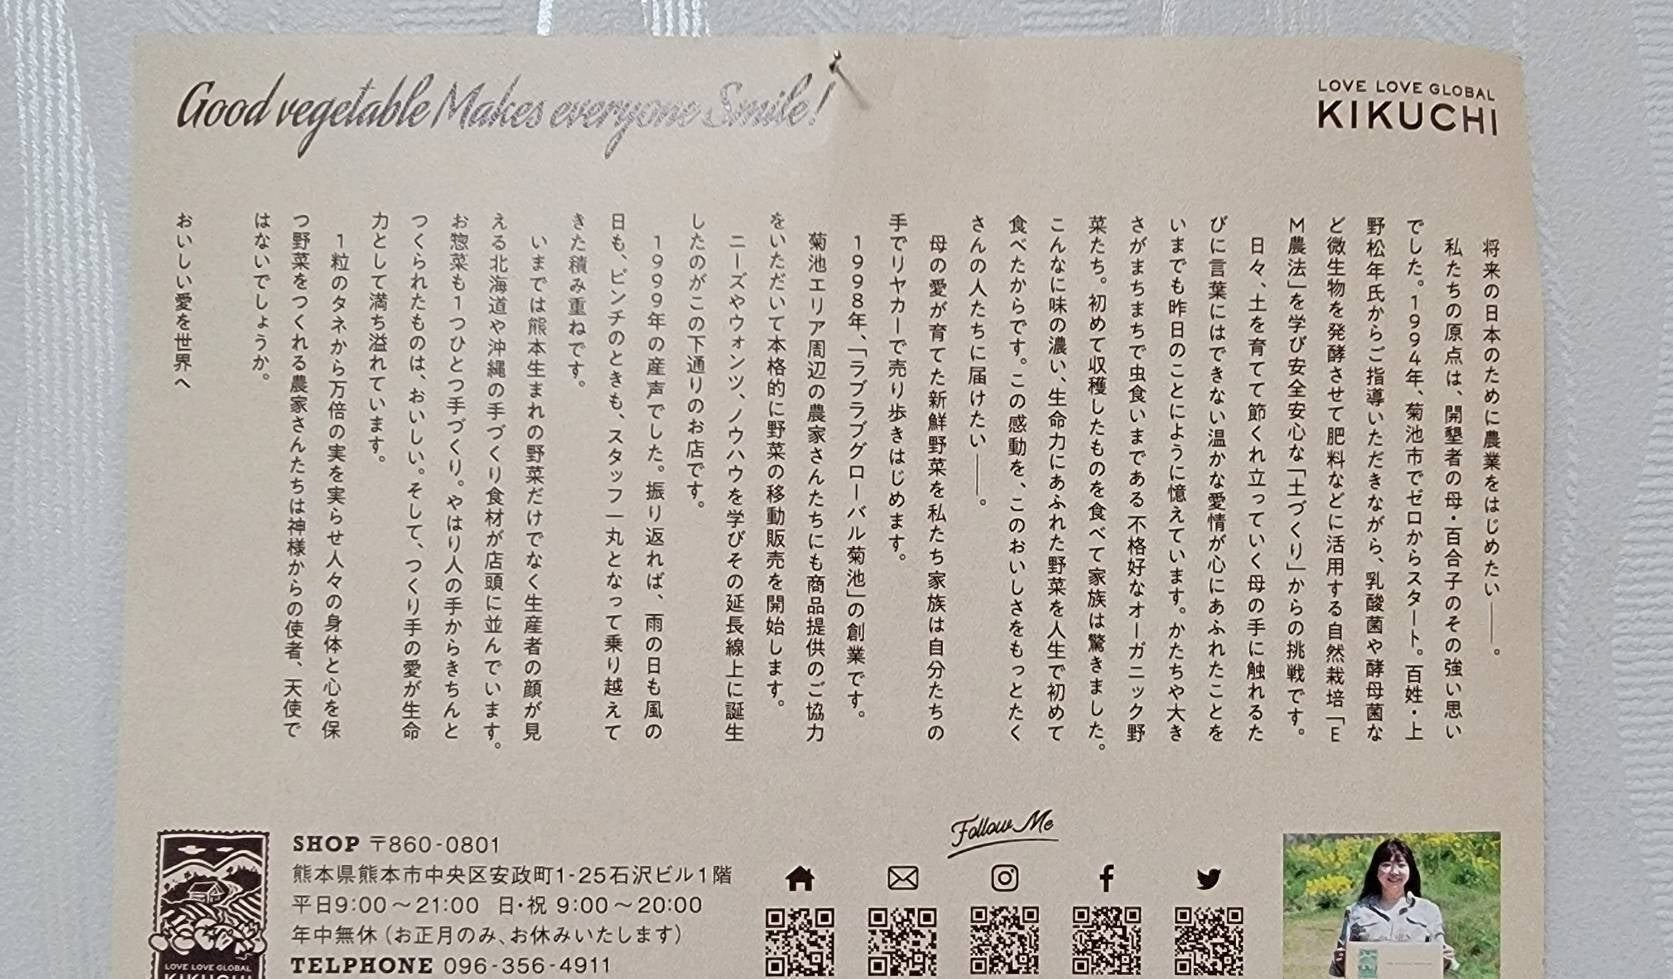 Good vegetable Makes everyone Smile!
LOVE LOVE GLOBAL
KIKUCHI
将来の日本のために農業をはじめたい――。
私たちの原点は、開墾者の母・百合子のその強い思い
でした。1994年、菊池市でゼロからスタート。百姓・上
野松年氏からご指導いただきながら、乳酸菌や酵母菌な
ど微生物を発酵させて肥料などに活用する自然栽培「E
M農法」を学び安全安心な「土づくり」からの挑戦です。
日々、土を育てて節くれ立っていく母の手に触れるた
びに言葉にはできない温かな愛情が心にあふれたことを
いまでも昨日のことにように憶えています。かたちや大き
さがまちまちで虫食いまである不格好なオーガニック野
菜たち。初めて収穫したものを食べて家族は驚きました。
こんなに味の濃い、生命力にあふれた野菜を人生で初めて
食べたからです。この感動を、このおいしさをもっとたく
さんの人たちに届けたい――。
母の愛が育てた新鮮野菜を私たち家族は自分たちの
手でリヤカーで売り歩きはじめます。
1998年、「ラブラブグローバル菊池」の創業です。
菊池エリア周辺の農家さんたちにも商品提供のご協力
をいただいて本格的に野菜の移動販売を開始します。
ニーズやウォンツ、ノウハウを学びその延長線上に誕生
したのがこの下通りのお店です。
1999年の産声でした。振り返れば、雨の日も風の
日も、ピンチのときも、スタッフ一丸となって乗り越えて
きた積み重ねです。
いまでは熊本生まれの野菜だけでなく生産者の顔が見
える北海道や沖縄の手づくり食材が店頭に並んでいます。
お惣菜も1つひとつ手づくり。やはり人の手からきちんと
つくられたものは、おいしい。そして、つくり手の愛が生命
力として満ち溢れています。
1粒のタネから万倍の実を実らせ人々の身体と心を保
つ野菜をつくれる農家さんたちは神様からの使者、天使で
はないでしょうか。
おいしい愛を世界へ
Follow Me
SHOP 〒860-0801
熊本県熊本市中央区安政町1-25石沢ビル1階
平日9:00～21:00 日・祝 9:00～20:00
年中無休（お正月のみ、お休みいたします）
TELPHONE 096-356-4911
LOVE LOVE GLOBAL
KIKUCHI